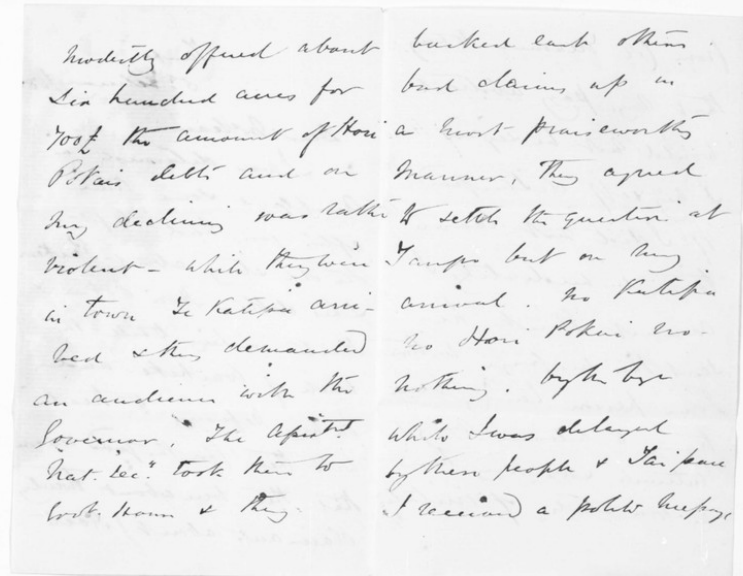 modestly offered about
six hundred acres for
700£ the amount of Hori
Pokais debts and on
my declining was rather
violent - while they were
in town Te Katipa arri-
ved & they demanded
an audience with the
Governor, The Assist.t
Nat. Sec.y took them to
Govt. House & they
backed each others
bad claims up in
a most praiseworthy
manner, They agreed
to settle the question at
Taupo but on my
arrival. no Katipa
no Hori Pokai no-
nothing. by the bye
while I was delayed
by these people & Taipari
I received a polite message